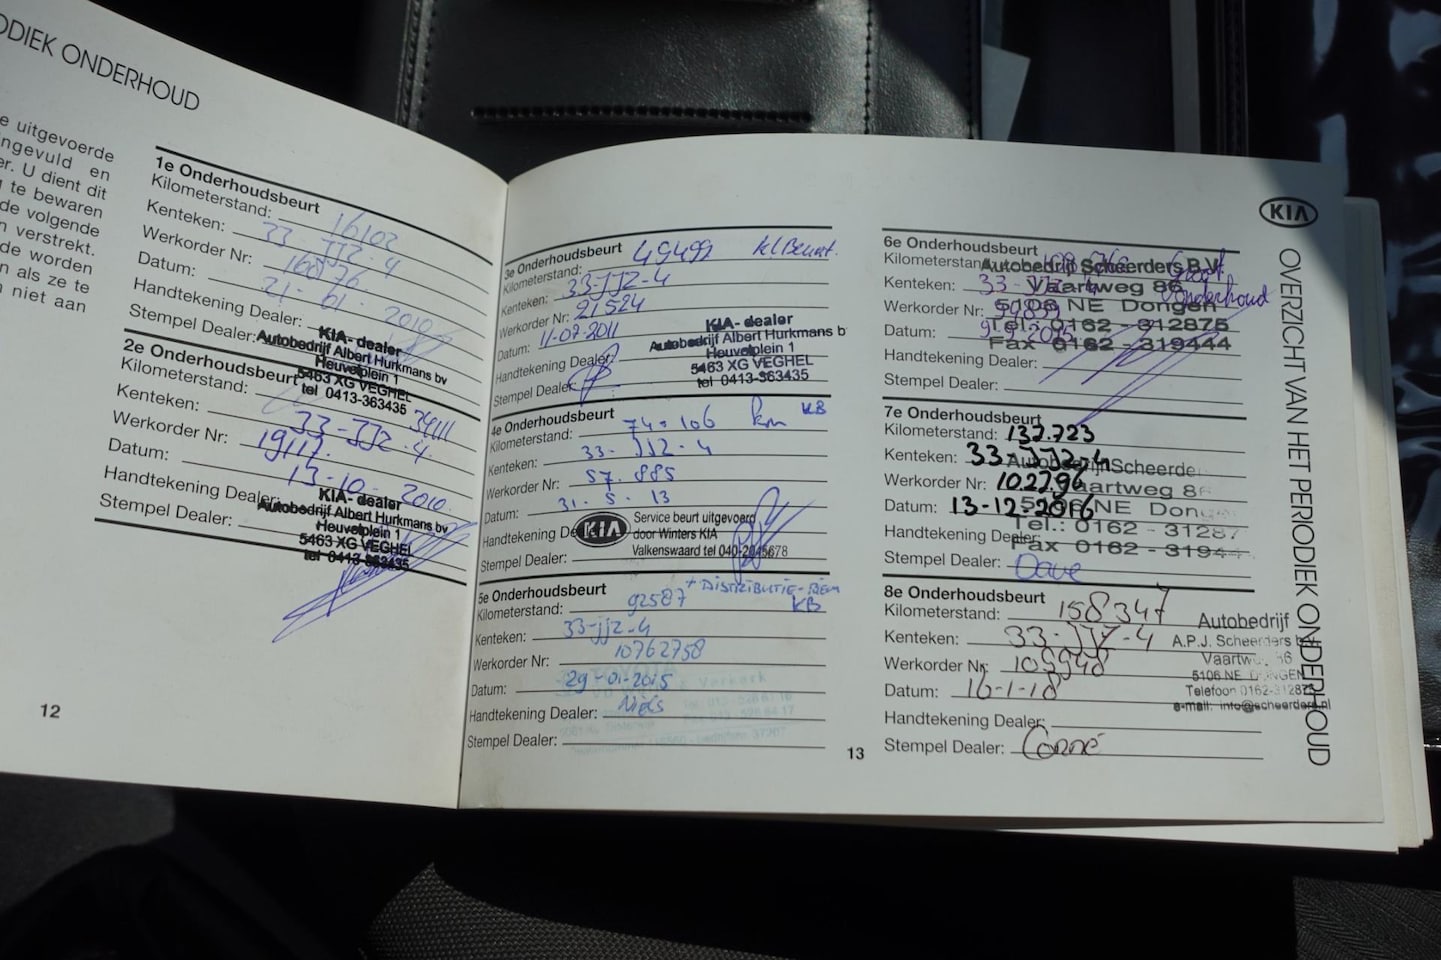 ODIEK ONDERHOUD
e uitgevoerde
ngevuld en
er. U dient dit
te bewaren
de volgende
n verstrekt.
de worden
n als ze te
n niet aan
1e Onderhoudsbeurt
Kilometerstand: 16102
Kenteken: 33-JJZ-4
Werkorder Nr: 160876
Datum: 21 01 2010
Handtekening Dealer:
Stempel Dealer:
KIA- dealer
Autobedrijf Albert Hurkmans bv
Heuvelplein 1
5463 XG VEGHEL
tel 0413-363435
2e Onderhoudsbeurt
Kilometerstand: 34111
Kenteken: 33-JJZ-4
Werkorder Nr: 19117.
Datum: 13-10-2010
Handtekening Dealer:
Stempel Dealer:
KIA- dealer
Autobedrijf Albert Hurkmans bv
Heuvelplein 1
5463 XG VEGHEL
tel 0413-363435
12
3e Onderhoudsbeurt
Kilometerstand: 49499 kl Beurt.
Kenteken: 33-JJZ-4
Werkorder Nr: 21524
Datum: 11-07-2011
Handtekening Dealer:
Stempel Dealer:
KIA- dealer
Autobedrijf Albert Hurkmans b
Heuvelplein 1
5463 XG VEGHEL
tel 0413-363435
4e Onderhoudsbeurt
Kilometerstand: 74.106 km KB
Kenteken: 33-JJZ-4
Werkorder Nr: 57.885
Datum: 31.5.13
Handtekening De
Stempel Dealer:
KIA
Service beurt uitgevoerd
door Winters KIA
Valkenswaard tel 040-2045678
5e Onderhoudsbeurt + DISTRIBUTIE-RIEM
Kilometerstand: 92587 KB
Kenteken: 33-jjz-4
Werkorder Nr: 10762758
Datum: 29-01-2015
Handtekening Dealer: Niels
Stempel Dealer:
TOYOTA
13
6e Onderhoudsbeurt
Kilometerstand: Groot
Kenteken: 33- onderhoud
Werkorder Nr:
Datum:
Handtekening Dealer:
Stempel Dealer:
Autobedrijf Scheerders B.V.
Vaartweg 86
5106 NE Dongen
Tel.: 0162 - 312875
Fax 0162 - 319444
7e Onderhoudsbeurt
Kilometerstand: 132.723
Kenteken: 33-JJZ-4
Werkorder Nr: 102796
Datum: 13-12-2016
Handtekening Dealer:
Stempel Dealer: Dave
Autobedrijf Scheerde
Vaartweg 8
5106 NE Dong
Tel.: 0162 - 31287
Fax 0162 - 3194
8e Onderhoudsbeurt
Kilometerstand: 158347
Kenteken: 33-JJZ-4
Werkorder Nr: 105948
Datum: 16-1-18
Handtekening Dealer:
Stempel Dealer: Corné
Autobedrijf
A.P.J. Scheerders b.v.
Vaartw 86
5106 NE DONGEN
Telefoon 0162-312875
e-mail: info@scheerders.nl
KIA
OVERZICHT VAN HET PERIODIEK ONDERHOUD